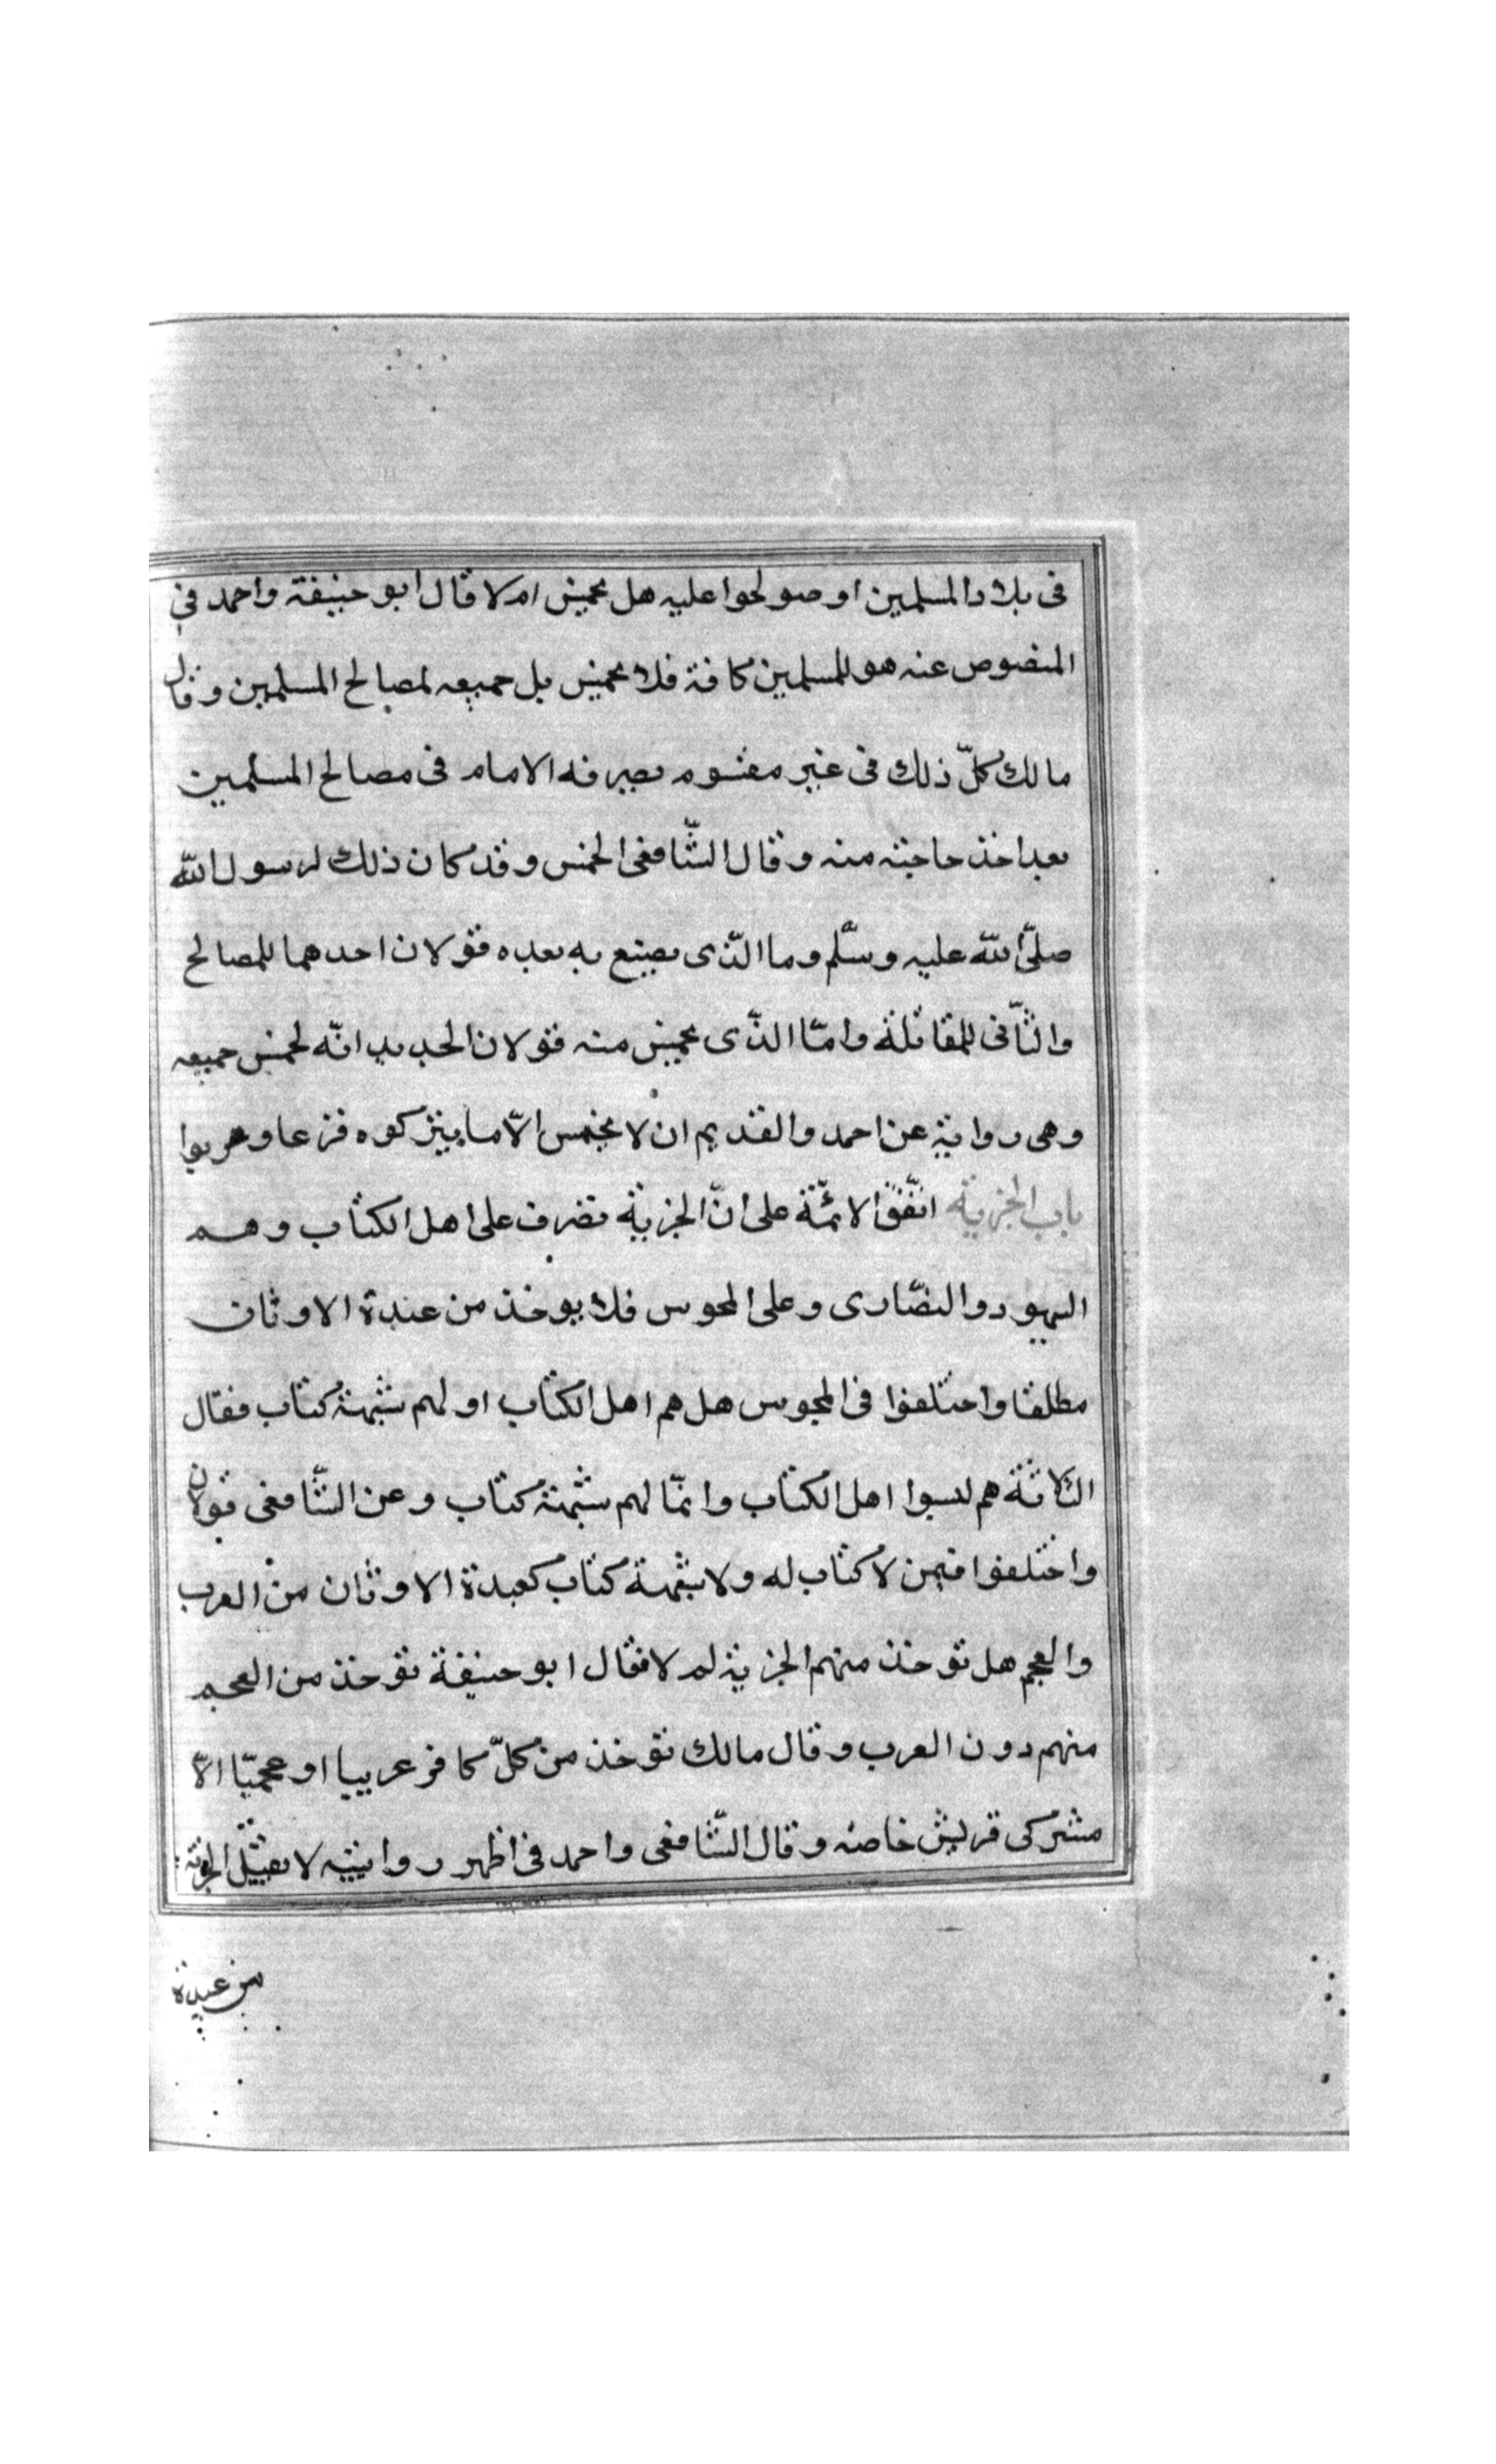 فى بلاد المسلمين او صولحوا عليه هل يخمس ام لا قال ابو حنيفة واحمد فى
المنصوص عنه هو للمسلمين كافة فلا يخمس بل جميعه لمصالح المسلمين وقال
مالك كلّ ذلك فى غير مقسوم يصرفه الامام فى مصالح المسلمين
بعد اخذ حاجته منه وقال الشّافعى الخمس وقد كان ذلك لرسول الله
صلّى الله عليه وسلّم وما الّذى يصنع به بعده قولان احدهما للمصالح
والثّانى للمقاتلة وامّا الذّى يخمس منه قولان الجديد انّه لخمس جميعه
وهى رواية عن احمد والقديم ان لا يخمس الاّ ما يتركوه فزعا وهربوا
باب الجزية اتّفق الائمّة على انّ الجزية تضرب على اهل الكتاب وهم
اليهود والنصّارى وعلى المجوس فلا يوخذ من عبدة الاوثان
مطلقا واختلفوا فى المجوس هل هم اهل الكتاب او لهم شبهة كتاب فقال
الثلاثة هم ليسوا اهل الكتاب وانمّا لهم شبهة كتاب وعن الشّافعى قولان
واختلفوا فيمن لا كتاب له ولا شبهة كتاب كعبدة الاوثان من العرب
والعجم هل توخذ منهم الجزية ام لا فقال ابو حنيفة توخذ من العجم
منهم دون العرب وقال مالك توخذ من كلّ كافر عربيا او عجميّا الاّ
مشركى قريش خاصة وقال الشّافعى واحمد فى اظهر روايتيه لا تقبل الجزية
من عبدة